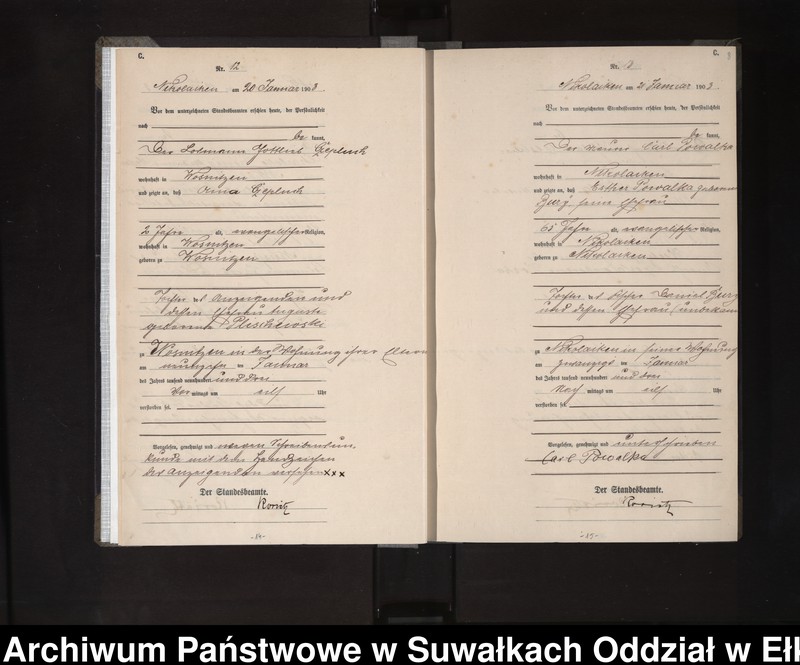 C.
Nr. 12
Nikolaiken am 20 Januar 1903.
Vor dem unterzeichneten Standesbeamten erschien heute, der Persönlichkeit
nach
be kannt,
Der Losmann Gottlieb
wohnhaft in Wosnitzen
und zeigte an, daß
2 Jahre alt, evangelischer Religion,
wohnhaft in Wosnitzen
geboren zu Wosnitzen
Tochter des Anzeigenden und
dessen Ehefrau Auguste
geborene
zu Wosnitzen in der Wohnung ihrer Eltern
am neunzehn ten Januar
des Jahres tausend neunhundert und drei
Vor mittags um elf Uhr
verstorben sei.
Vorgelesen, genehmigt und wegen Schreibensun-
kunde mit den Handzeichen
des Anzeigenden versehen xxx
Der Standesbeamte.
-14-
C.
Nr.
Nikolaiken am 21 Januar 1903.
Vor dem unterzeichneten Standesbeamten erschien heute, der Persönlichkeit
nach
be kannt,
Der Carl Powalka
wohnhaft in Nikolaiken
und zeigte an, daß Esther Powalka geborene
Burg seine Ehefrau
65 Jahre alt, evangelischer Religion,
wohnhaft in Nikolaiken
geboren zu Nikolaiken
Tochter des Daniel Burg
und dessen Ehefrau, unbekannt
zu Nikolaiken in seiner Wohnung
am zwanzigsten Januar
des Jahres tausend neunhundert und drei
Nach mittags um elf Uhr
verstorben sei.
Vorgelesen, genehmigt und unterschrieben
Carl Powalka
Der Standesbeamte.
-15-
Archiwum Państwowe w Suwałkach Oddział w Eł